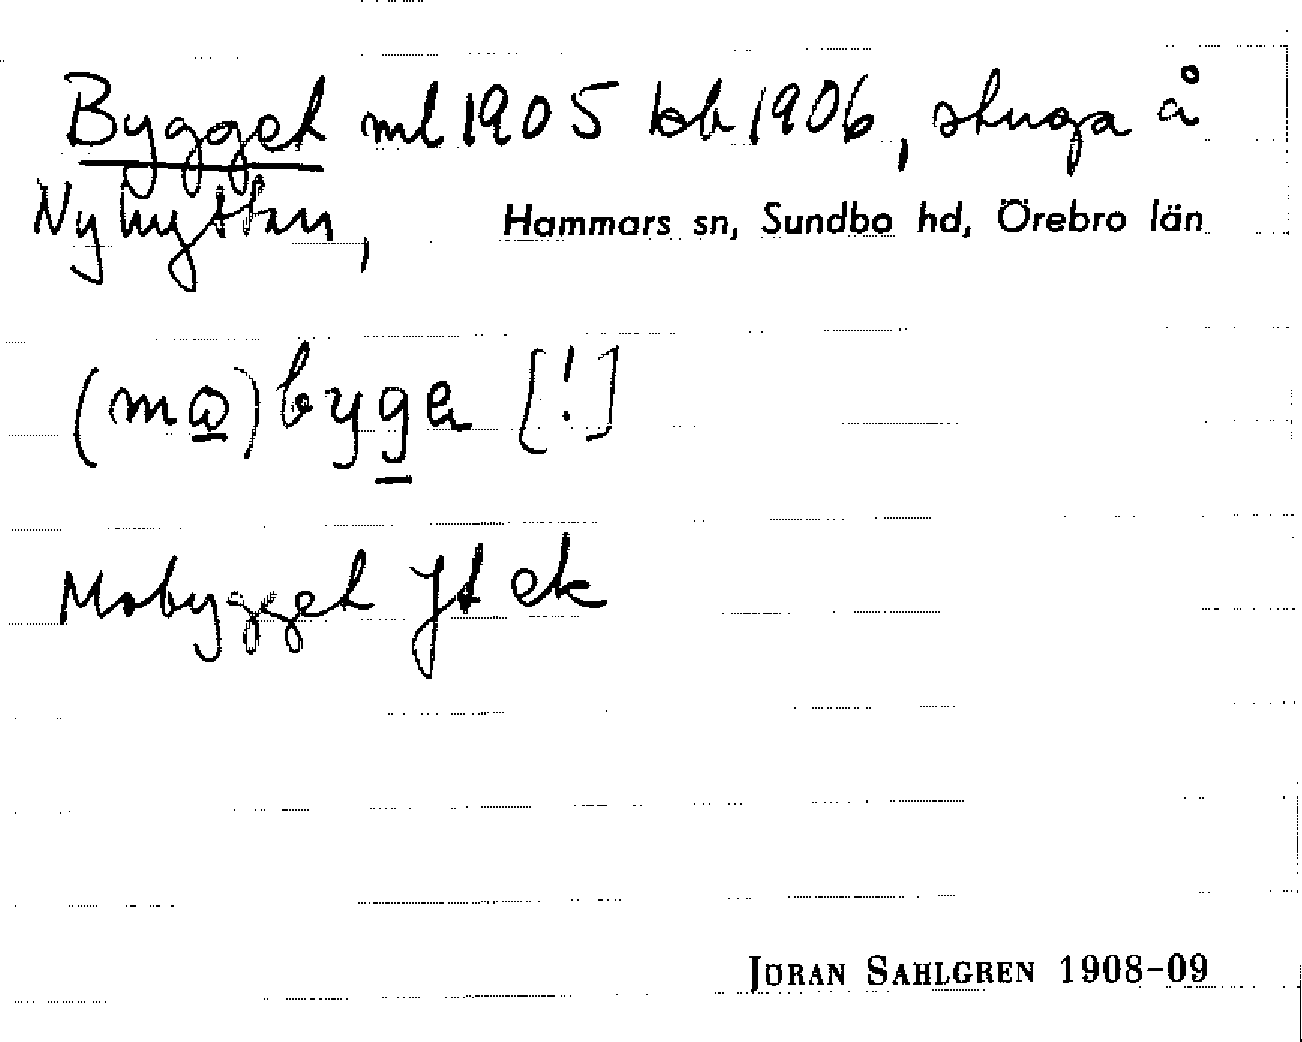 Bygget ml 1905 kb 1906, stuga å
Nyhyttan, Hammars sn, Sundbo hd, Örebro län
(mω)bygeͅ [!]
Mobygget Jt ek
JÖRAN SAHLGREN 1908-09